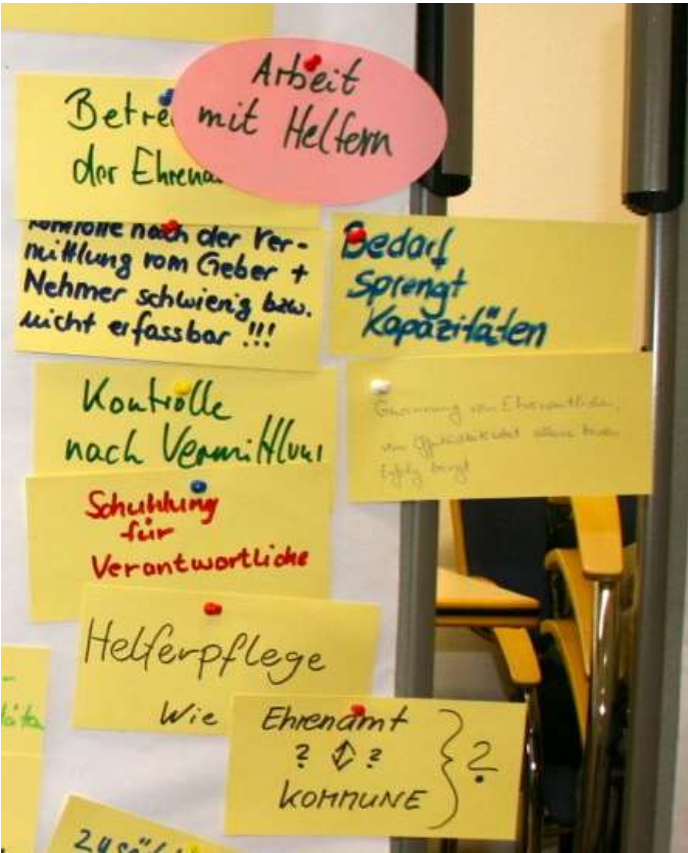 Arbeit
mit Helfern
Betre
der Ehrena
Kontrolle nach der Ver-
mittlung vom Geber +
Nehmer schwierig bzw.
nicht erfassbar !!!
Bedarf
sprengt
Kapazitäten
Kontrolle
nach Vermittlun
Gewinnung von Ehrenamtlichen,
Schuhlung
für
Verantwortliche
Helferpflege
Wie
Ehrenamt
? ⇕ ? } ?
KOMMUNE